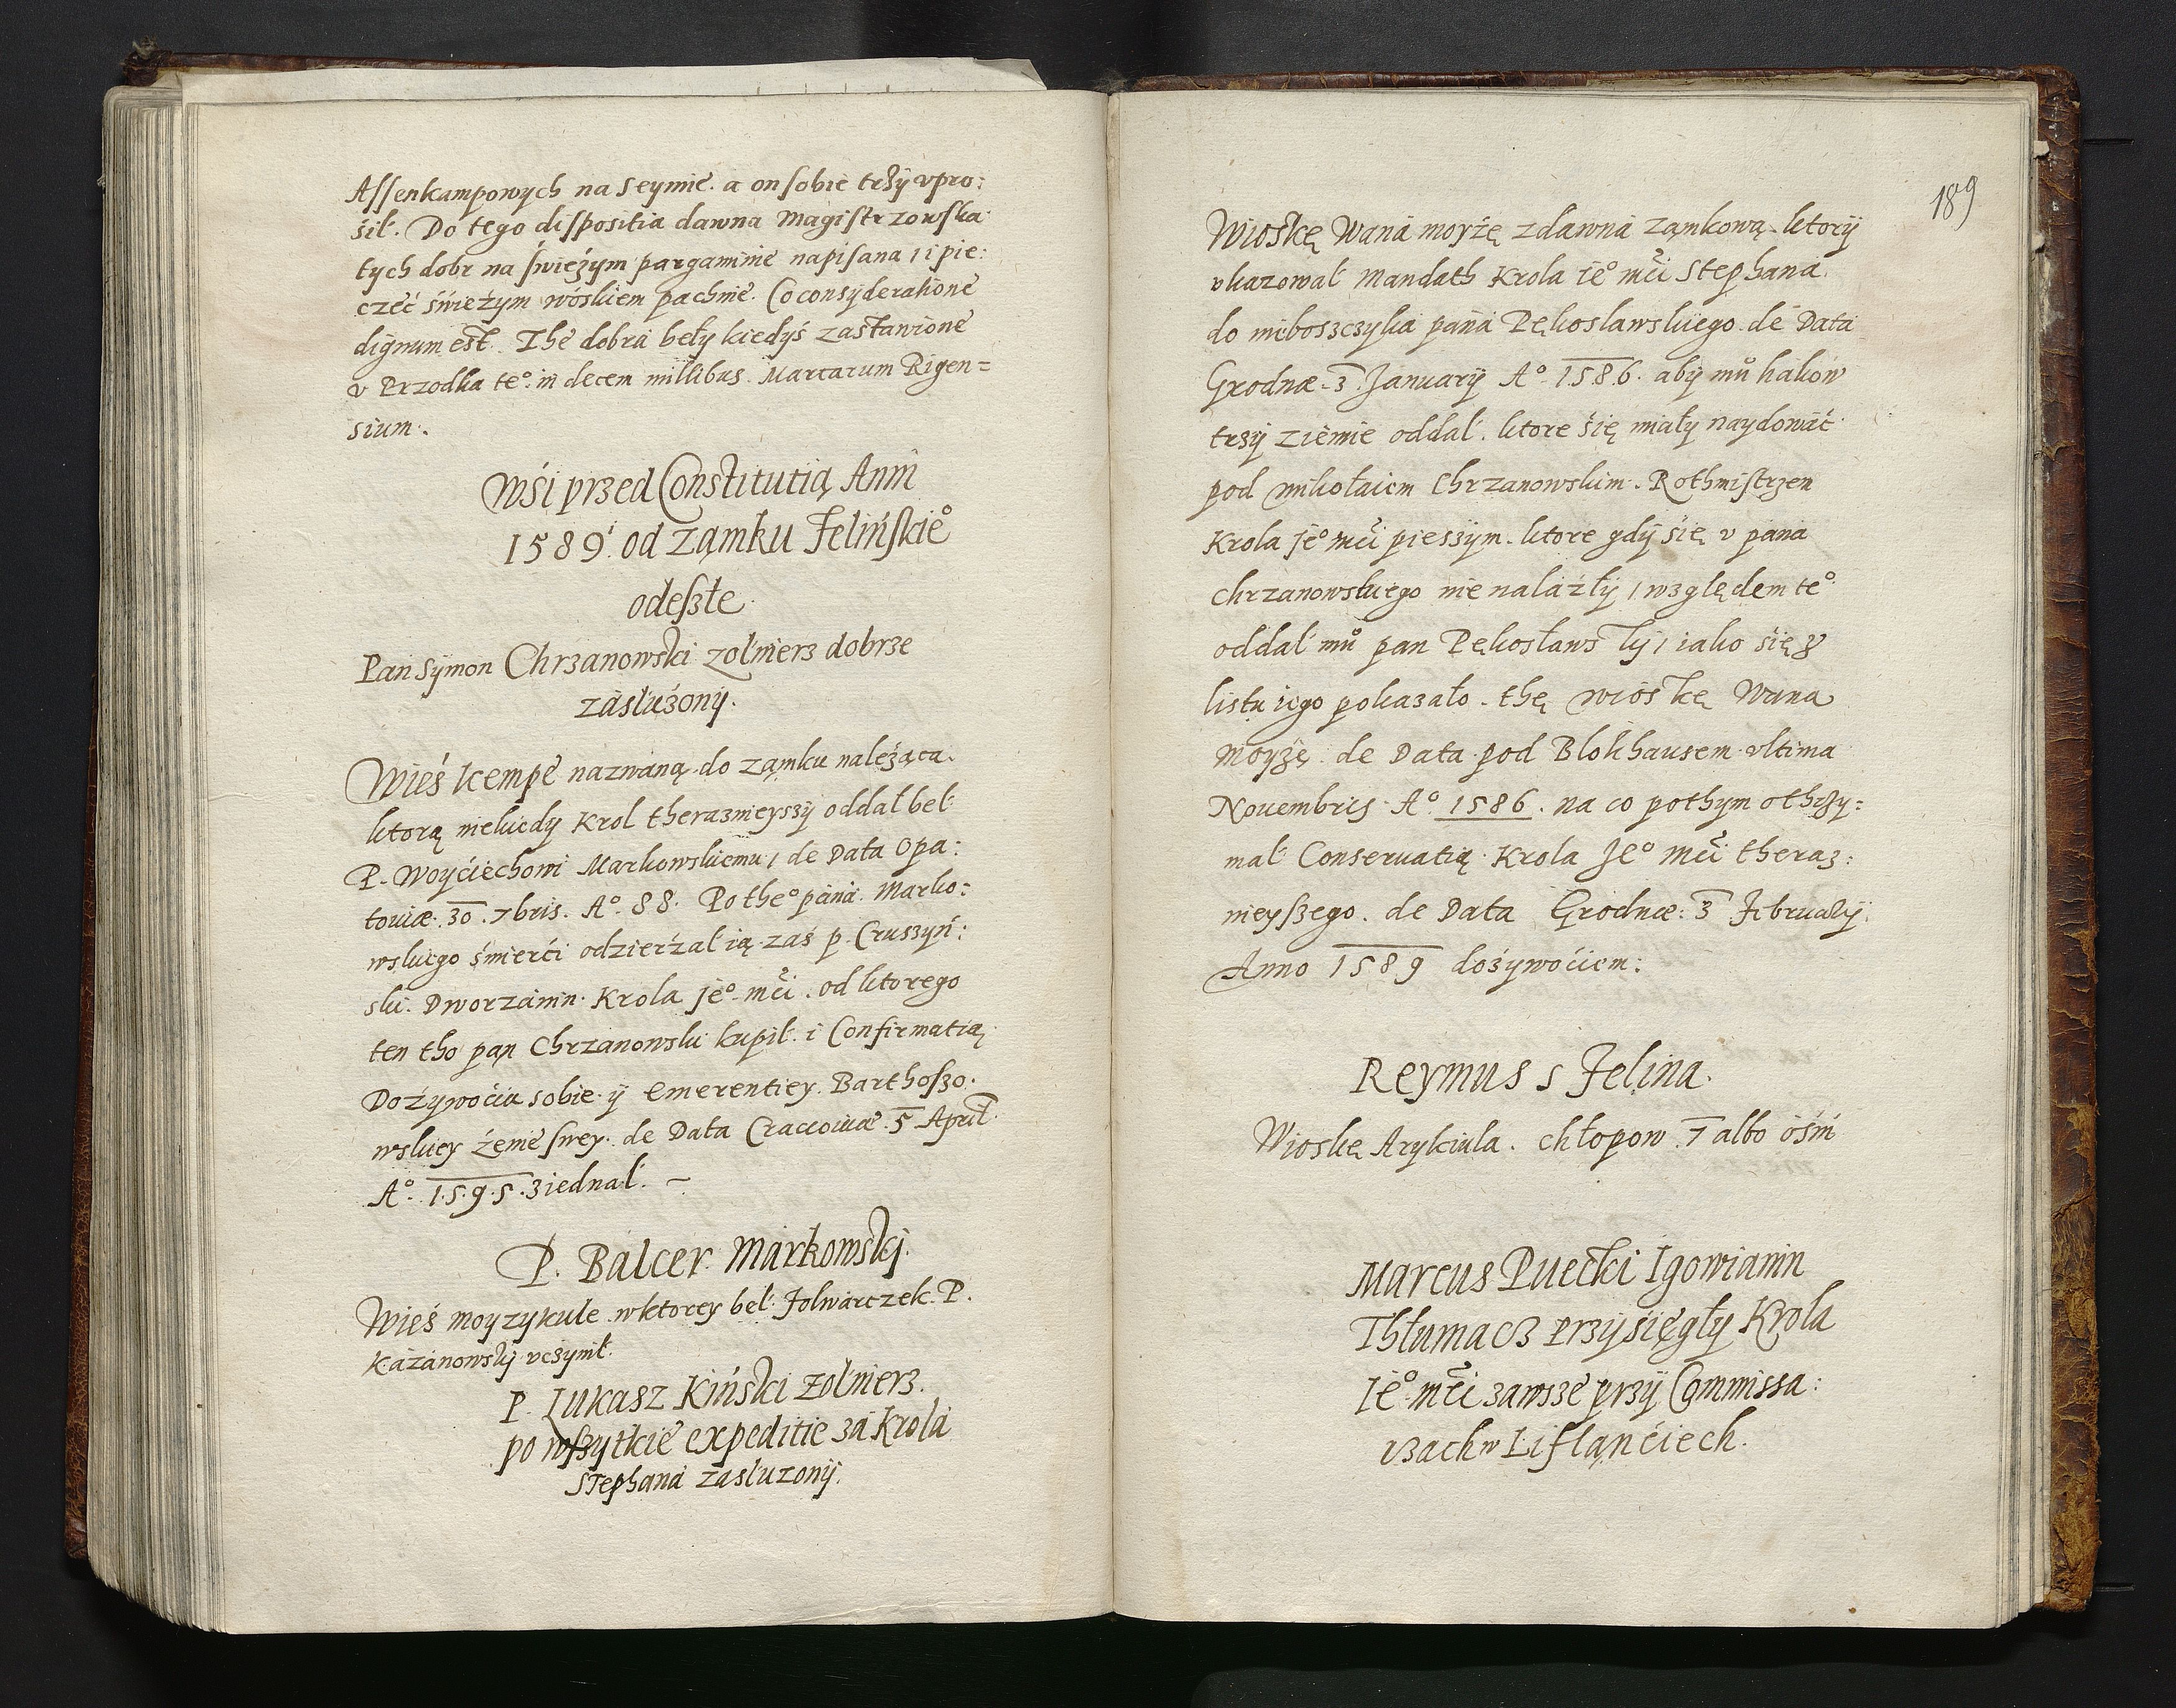 Assenkampowych na seymie. a on sobie trzy vpro:
śił. Do tego dispositia dawna Magistrzowska
tych dobr na świeżym pargaminie napisana / i pie:
częć świeżym woskiem pachnie. Co consyderatione
dignum est. The dobra beły kiedyś zastawione
v Przodka te°. in decem millibus Marcarum Rigen=
sium.
Wśi przed Constitutią Anni
1589. od Zamku Felińskie°
odeszłe
Pan Symon Chrzanowski zołnierz dobrze
zasłużony.
Wieś Kempe nazwaną do zamku należąca.
ktorą niekiedy Krol theraznieyszy oddał beł
P. Woyciechowi Markowskiemu / de Data Opa:
touiæ. 30. 7bris. A°. 88. Po the° pana Marko:
wskiego śmierći odzierżał ią zaś p. Cruszyń:
ski. Dworzanin Krola Je° mći. od ktorego
ten tho pan Chrzanowski kupił. i Confirmatią
Dożywoćia sobie y emerentiey Barthoszo.
wskiey żenie swey. de Data Cracouiæ. 5 April
A°. 1.5.9.5. ziednał. ~
P. Balcer Markowski.
Wieś moyzykule w ktorey beł Folwarczek P.
Kazanowskj vczynił.
P. Lukasz Kiński zołnierz.
po wszytkie expeditie za Krola
Stephana zasłuzony.
189
Wioskę Wana moyżę zdawna zamkową. ktory
vkazował Mandath Krola ie° mći Stephana.
do nieboszczyka pana Pękosławskiego de Data
Grodnæ. 3. January A°. 1586. aby mů hakow
trzy ziemie oddał. ktore się miały naydowáć
pod mikołaiem Chrzanowskim. Rothmistrzem
Krola je° mći pieszym. ktore gdy się v pana
Chrzanowskiego nie nalazły / względem te°
oddał mů pan Pękosławsky / iako się z
listu iego pokazało. thę wioskę Wana
moyzę de Data pod Blokhausem vltima
Nouembris A°. 1586. na co pothym othrzy:
mał Conseruatią Krola Je° mći theraz:
nieyszego. de Data Grodnæ: 3 February
Anno 1589 dożywoćiem:
Reymus s Felina.
Wioskę Arykiula. chłopow. 7 albo ośm
Marcus Puecki Igowianin
Thłumacz przysięgły Krola
Ie° mći zawsze przy Commissa:
rzach w Liflanćiech.